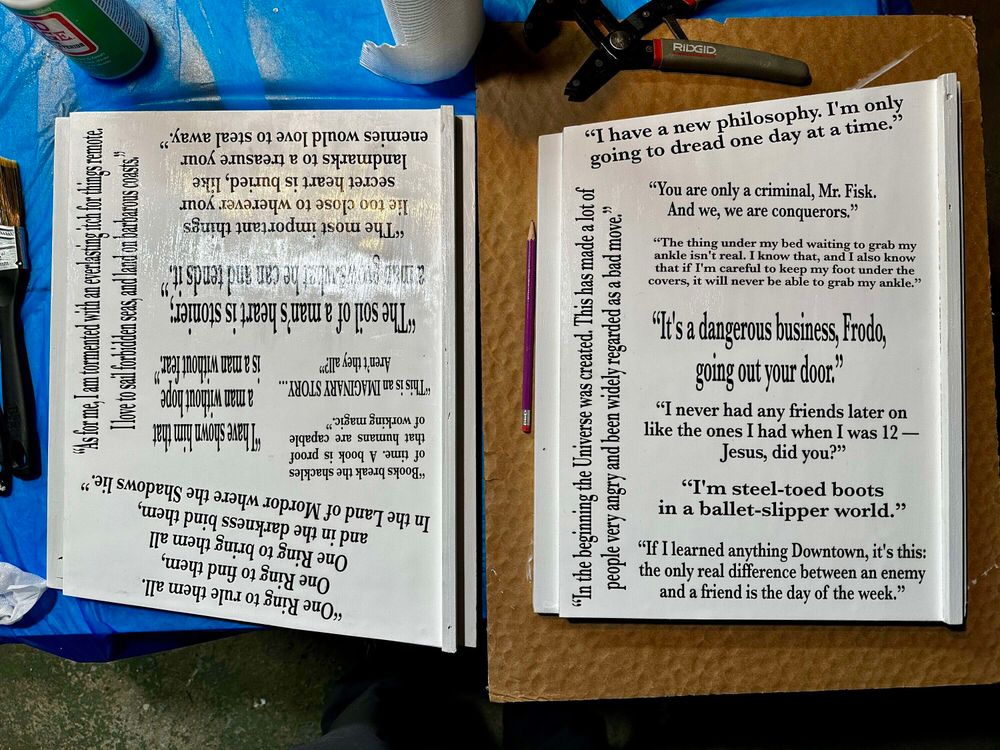 RIDGID
“As for me, I am tormented with an everlasting itch for things remote.
I love to sail forbidden seas, and land on barbarous coasts.”
“One Ring to rule them all.
One Ring to find them,
One Ring to bring them all
and in the darkness bind them,
In the Land of Mordor where the Shadows lie.”
“Books break the shackles
of time. A book is proof
that humans are capable
of working magic.”
“This is an IMAGINARY STORY...
Aren't they all?”
“I have shown him that
a man without hope
is a man without fear.”
“The soil of a man's heart is stonier;
a man grows what he can and tends it.”
“The most important things
lie too close to wherever your
secret heart is buried, like
landmarks to a treasure your
enemies would love to steal away.”
“I have a new philosophy. I'm only
going to dread one day at a time.”
“In the beginning the Universe was created. This has made a lot of
people very angry and been widely regarded as a bad move.”
“You are only a criminal, Mr. Fisk.
And we, we are conquerors.”
“The thing under my bed waiting to grab my
ankle isn't real. I know that, and I also know
that if I'm careful to keep my foot under the
covers, it will never be able to grab my ankle.”
“It's a dangerous business, Frodo,
going out your door.”
“I never had any friends later on
like the ones I had when I was 12 —
Jesus, did you?”
“I'm steel-toed boots
in a ballet-slipper world.”
“If I learned anything Downtown, it's this:
the only real difference between an enemy
and a friend is the day of the week.”